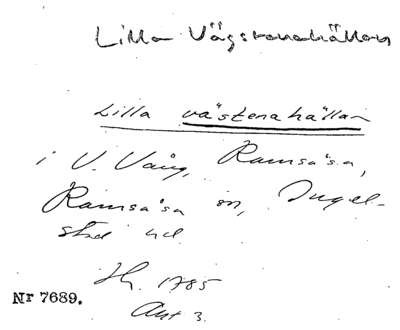 Lilla Vägstenahällan
Lilla västenahällan
i V. Vång, Ramsåsa,
Ramsåsa sn, Ingel-
stad hd
Nr 7689.
Jh. 1785
Akt 3.